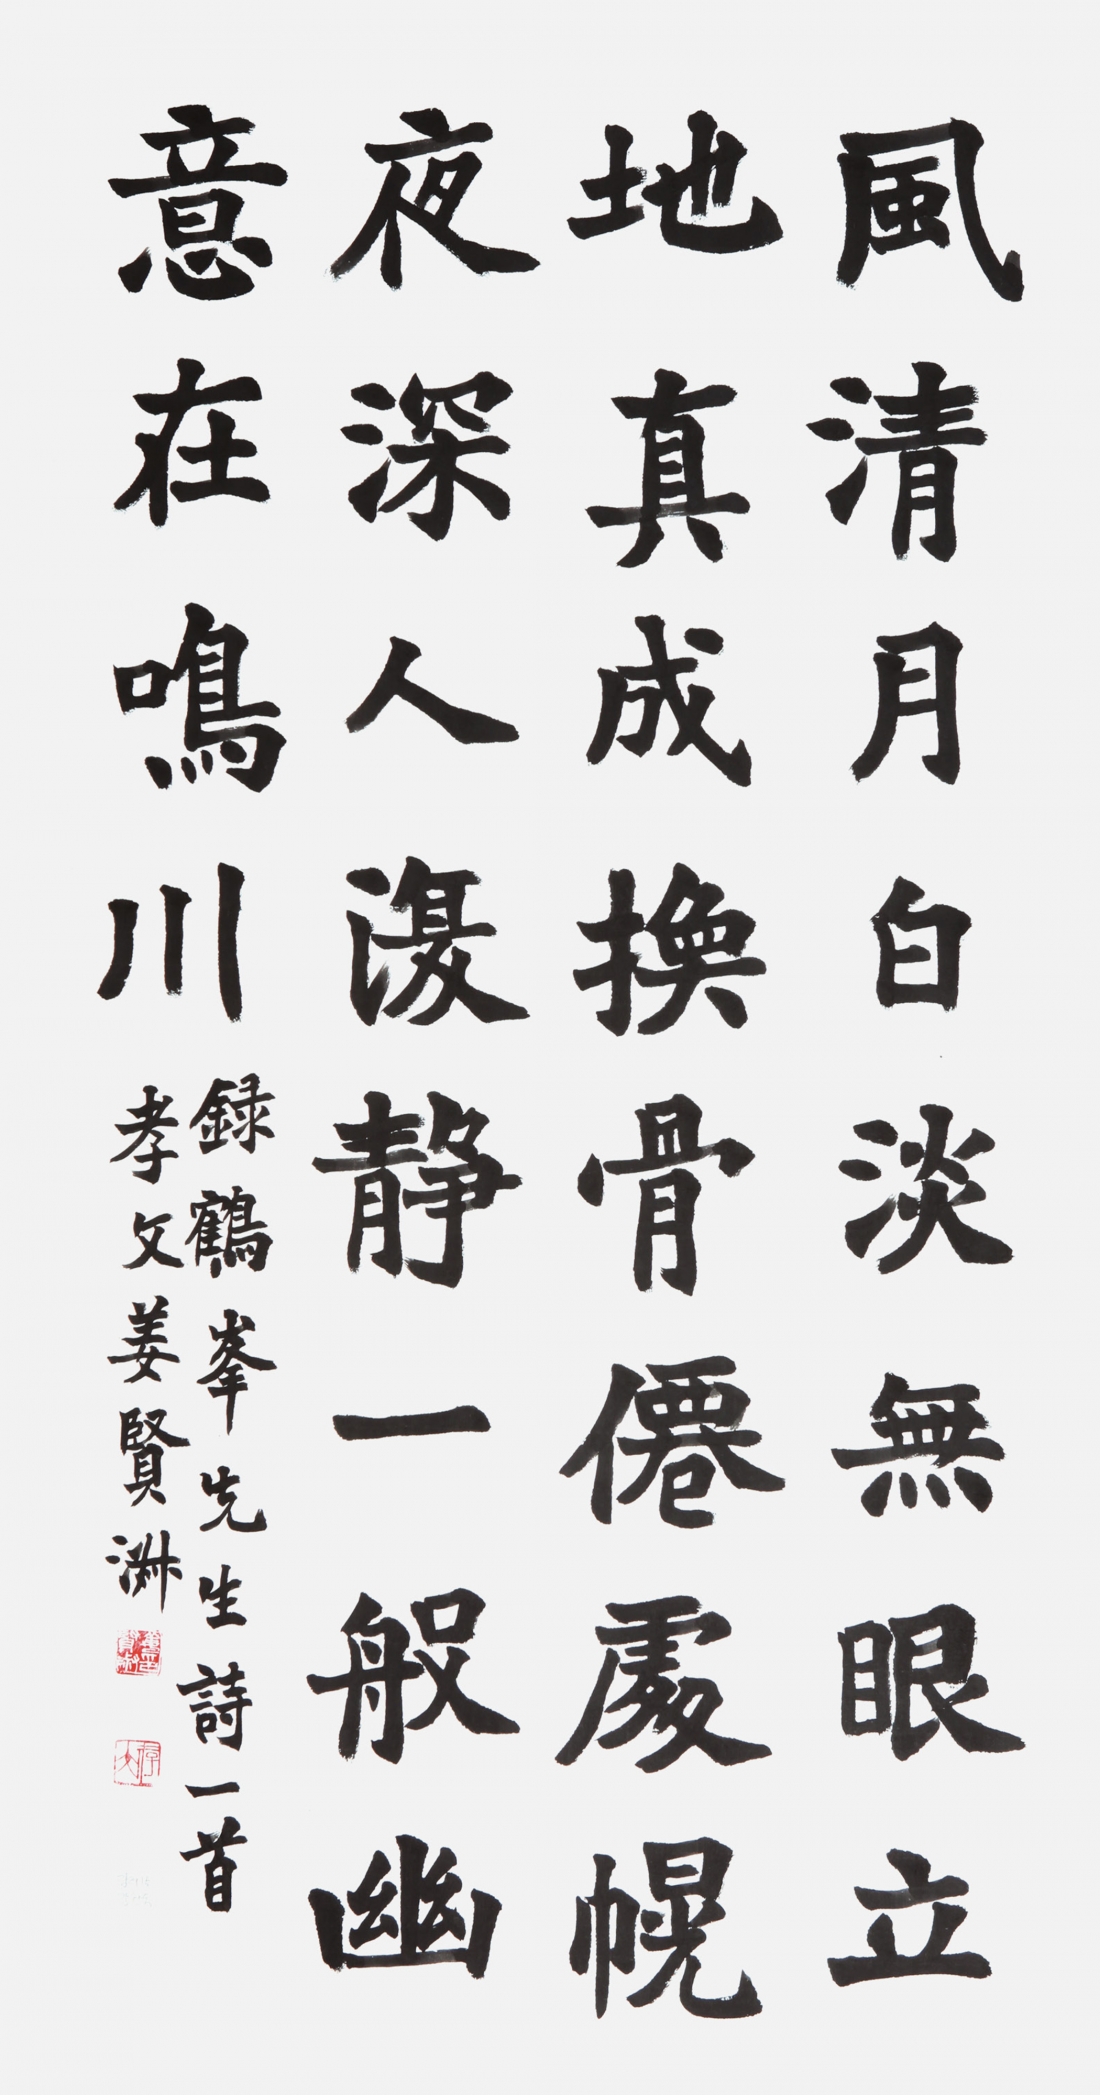 風清月白淡無眼立
地真成換骨僊處幌
夜深人濅静一般幽
意在鳴川
録鶴峯先生詩一首
孝文姜賢淋